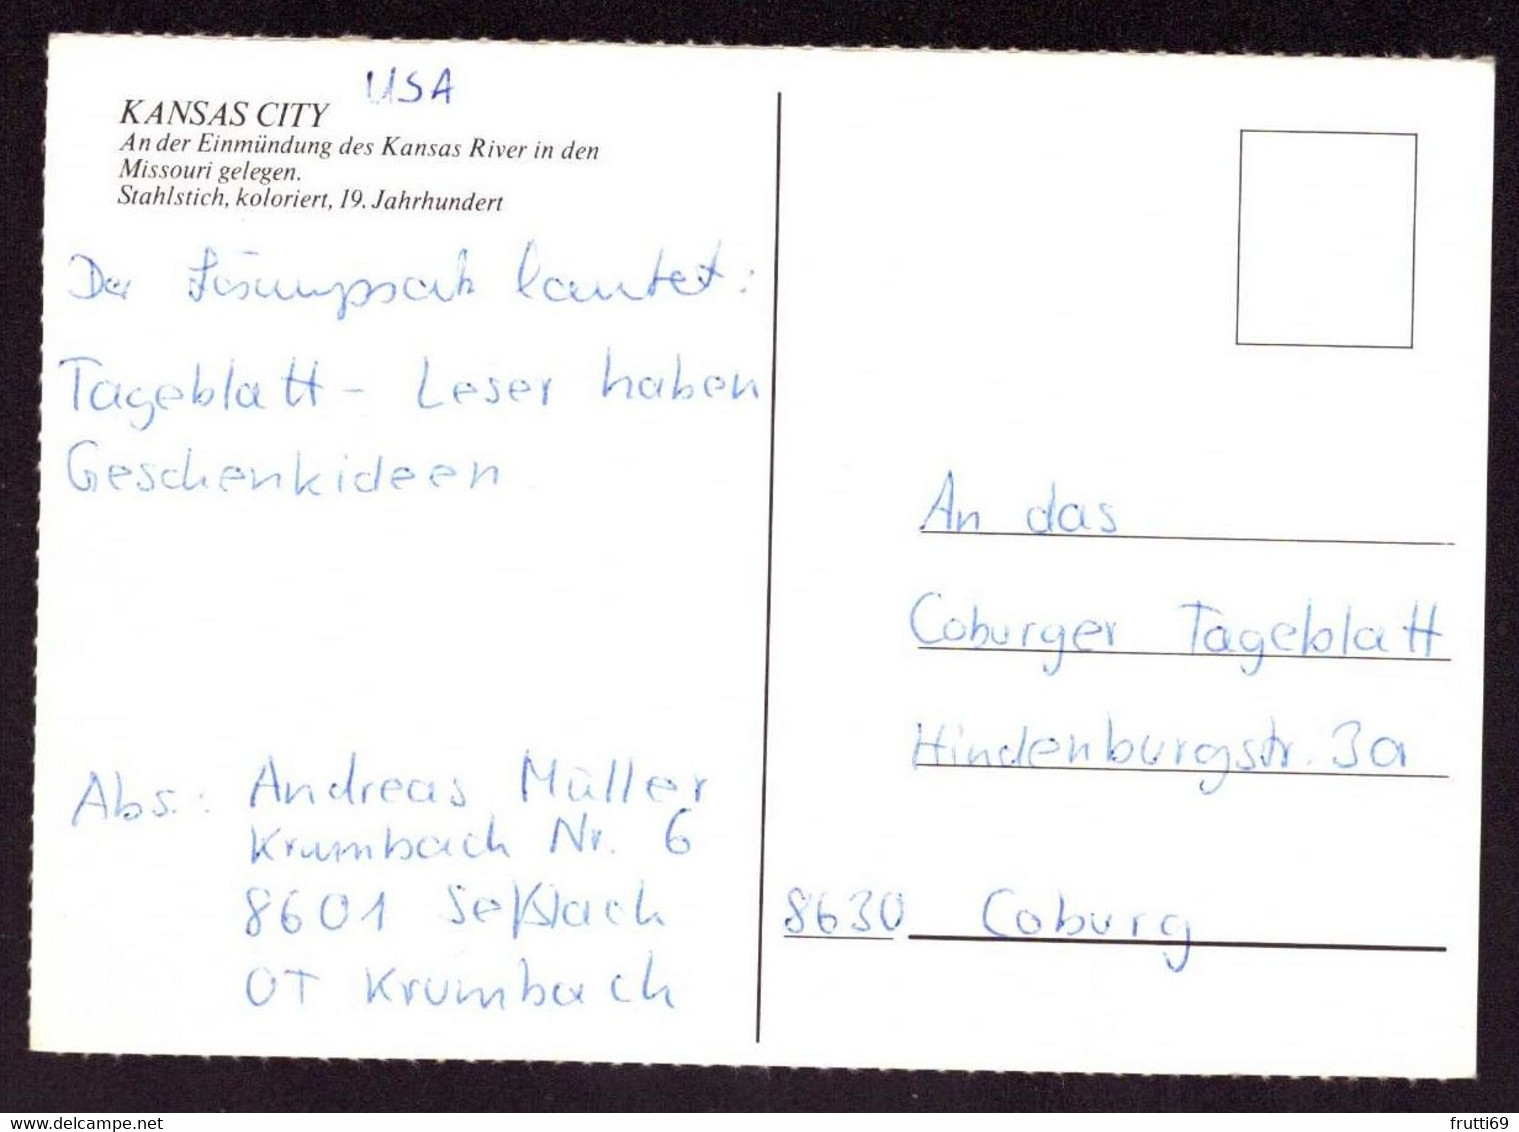 USA
KANSAS CITY
An der Einmündung des Kansas River in den
Missouri gelegen.
Stahlstich, koloriert, 19. Jahrhundert
Der Lösungssatz lautet:
Tageblatt - Leser haben
Geschenkideen
Abs.: Andreas Müller
Krumbach Nr. 6
8601 Seßlach
OT Krumbach
An das
Coburger Tageblatt
Hindenburgstr. 3a
8630 Coburg
www.delcampe.net
frutti69